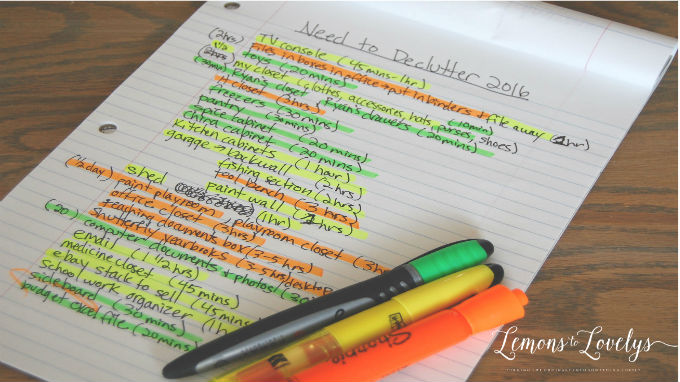 Need to Declutter 2016
TV console (45mins-1hr)
(2hrs) Files in boxes in office → put in binders + file away (1hr)
toys (20mins)
my closet (clothes, accessories, hats, purses, shoes)
Ryan's closet (10min) Ryan's drawers (20mins)
it closet (2hrs)
freezers (30mins)
pantry (5mins)
spice cabinet (20mins)
china cabinet (20mins)
kitchen cabinets (1 hour)
garage → rockwall (2hrs)
fishing section (2hrs)
tool bench (3hrs)
paint wall (2hrs)
shed (1hr)
(1/2 day) paint playroom playroom closet (3hrs)
office closet (3hrs)
keeping documents box (3-5hrs)
Shutterfly Yearbooks (3-5hrs) desktop
(20) computer documents + photos
email (1 1/2hrs)
medicine closet (45mins)
ebay stack to sell (45mins)
school work organizer (1h
sideboard (30mins)
budget file (20mins)
Sharpie
Lemons to Lovelys